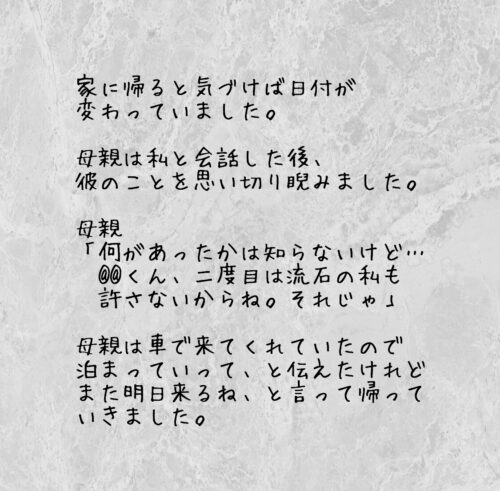 家に帰ると気づけば日付が
変わっていました。
母親は私と会話した後、
彼のことを思い切り睨みました。
母親
「何があったかは知らないけど…
@@くん、二度目は流石の私も
許さないからね。それじゃ」
母親は車で来てくれていたので
泊まっていって、と伝えたけれど
また明日来るね、と言って帰って
いきました。